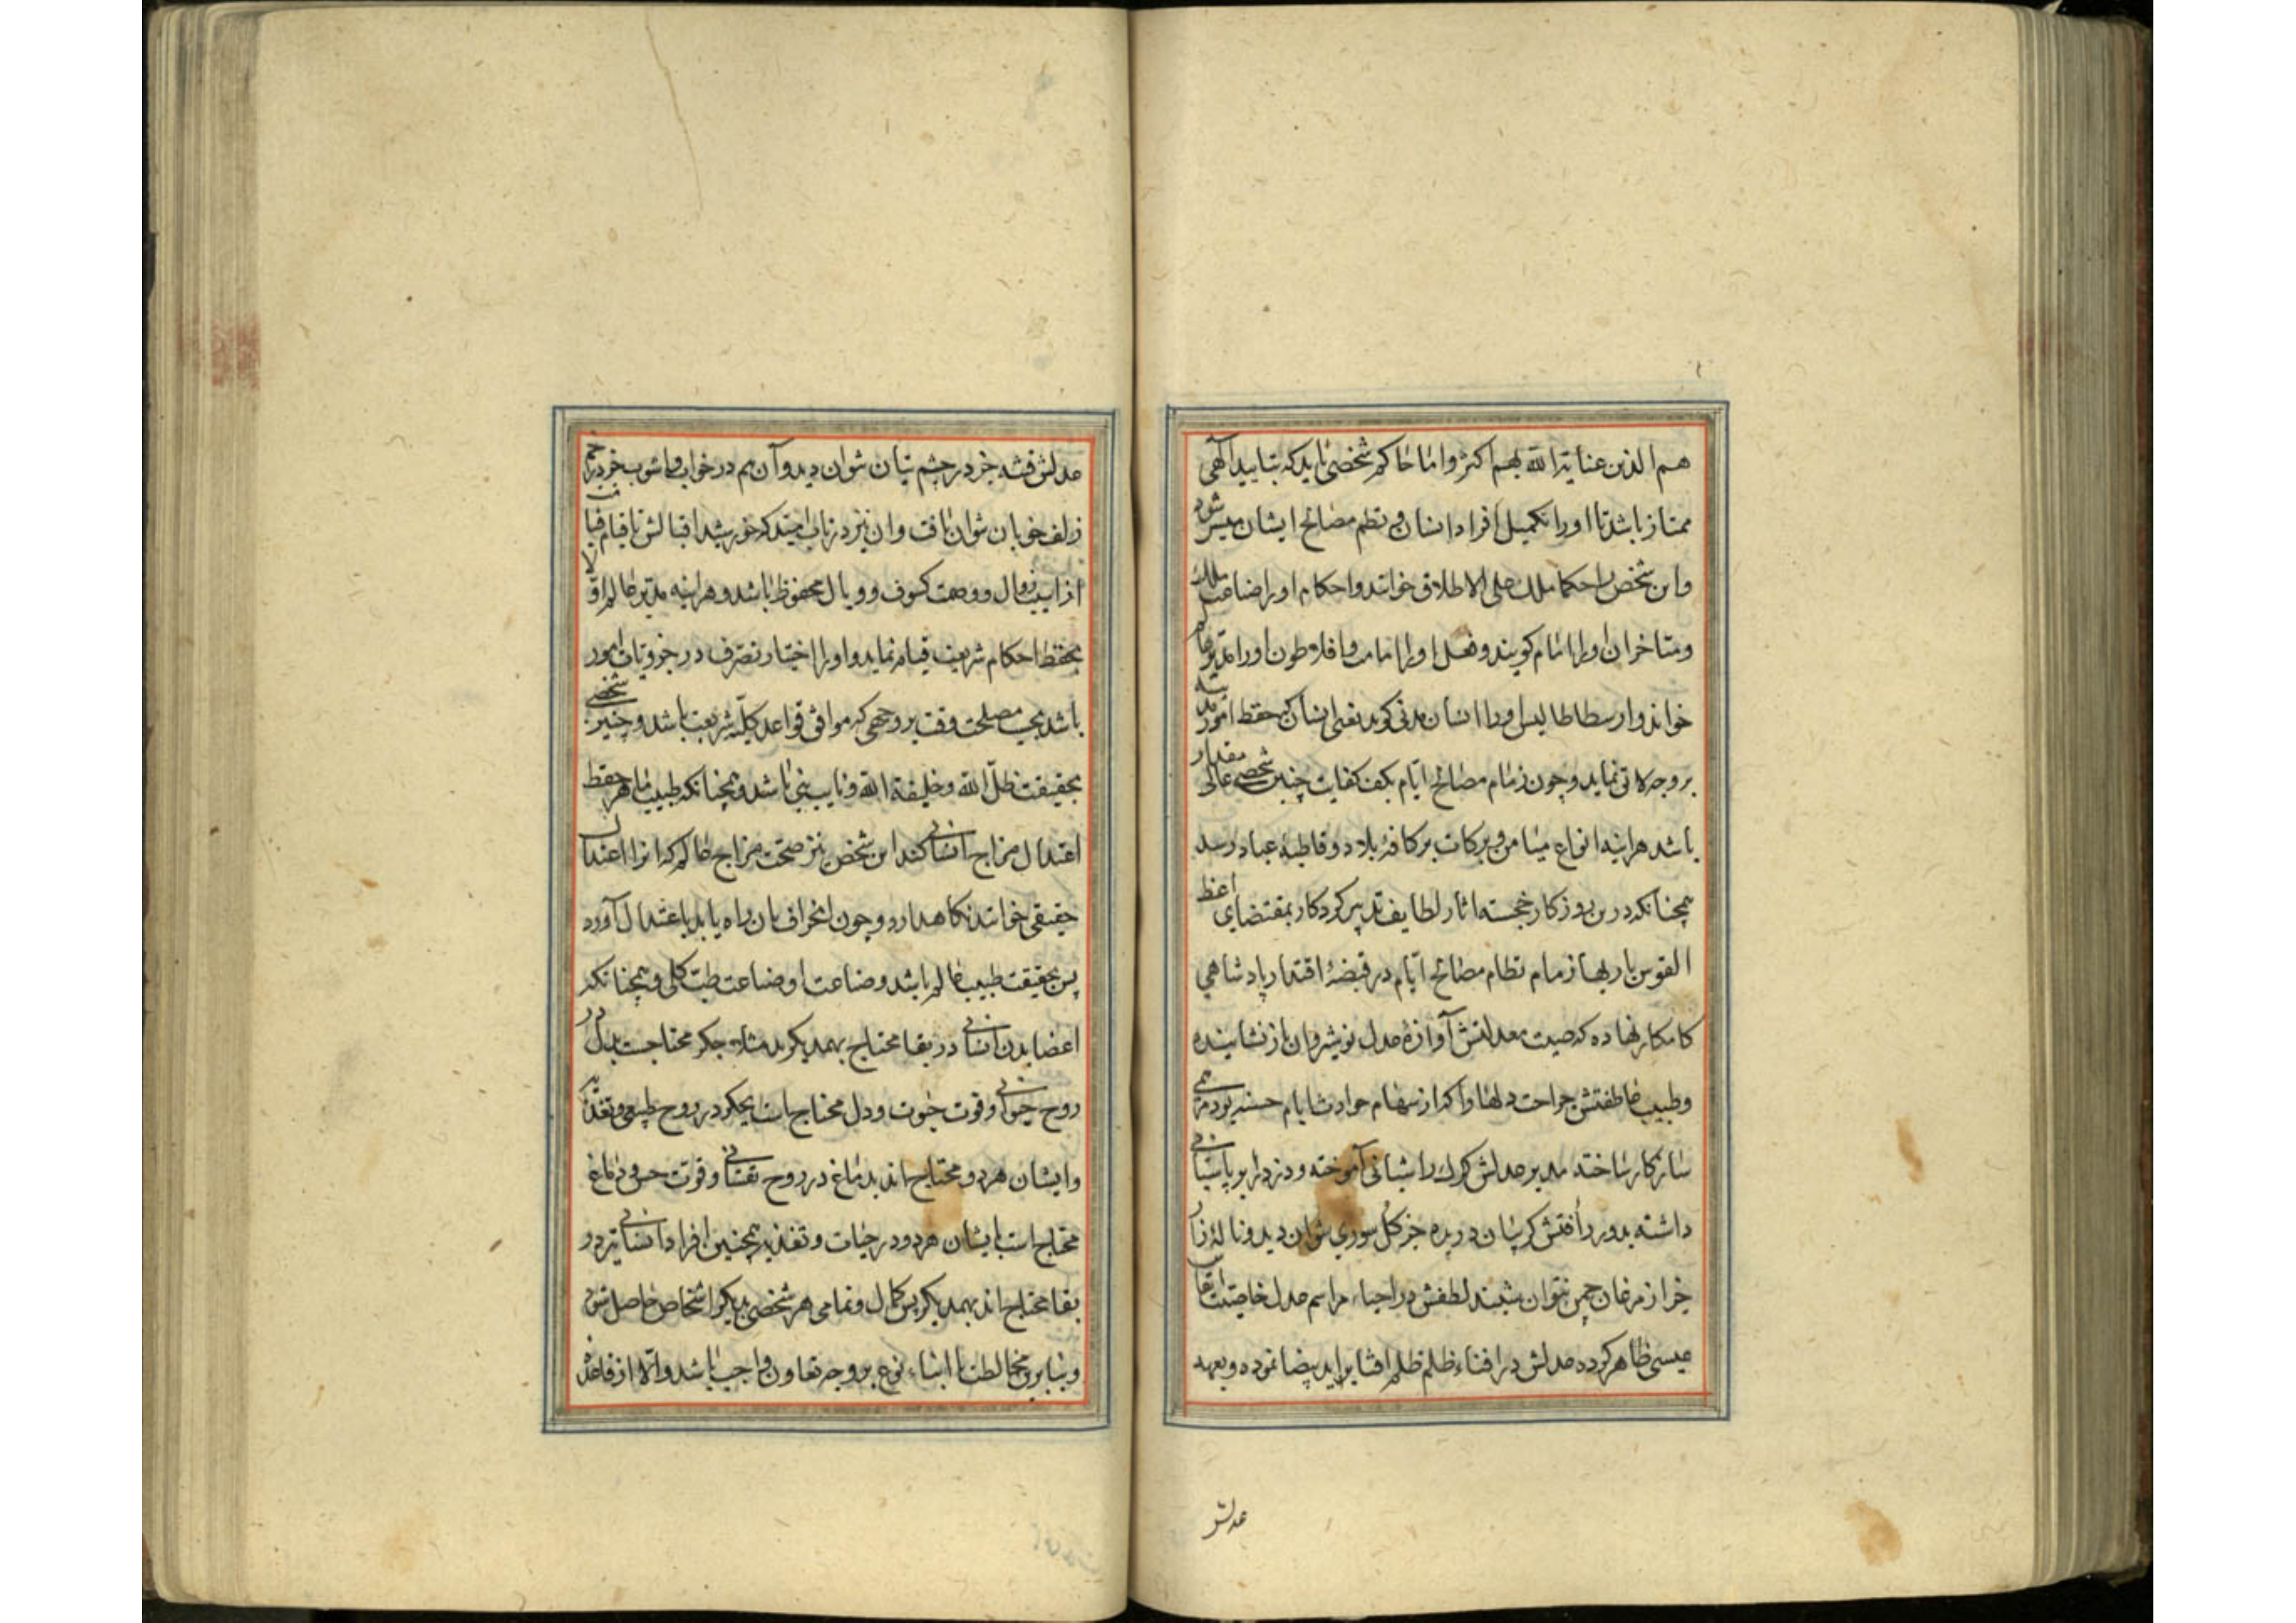 هم الذین عنایة الله بهم اکثر و اما حاکم شخصی باید که بتایید الهی
ممتاز باشد تا او را تکمیل افراد انسان و نظم مصالح ایشان میسر شود
و این شخص را حکما ملک علی الاطلاق خوانند و احکام او را صناعت ملک
و متاخران او را امام گویند و فعل او را امامت و افلاطون او را مدبر عالم
خواند و ارسطاطالیس او را انسان مدنی گوید یعنی انسان که حفظ امور مدنیه
بر وجه لایق نماید و چون زمام مصالح ایام بکف کفایت چنین شخصی عالی مقدار
باشد هراینه انواع میامن و برکات بر کافۀ بلاد و قاطبۀ عباد رسد
همچنانکه درین روزکار خجسته اثار لطایف تدبیر کردکار بمقتضای اعط
القوس باریها زمام نظام مصالح ایام در قبضۀ اقتدار پادشاهی
کامکار نهاده که صیت معدلتش آوازۀ عدل نوشیروان باز نشانیده
و طبیب عاطفتش جراحت دلها را که از سهام حوادث ایام خسته بود مرهمی
سازکار ساخته مدبر عدلش کرک را شبانی آموخته و دزد را بر پاسبانی
داشته بدور رأفتش کریبان دریده جز کل سوری نتوان دید و نالۀ زار
جز از مرغان چمن نتوان شنید لطفش در احیاء مراسم عدل خاصیت انفاس
عیسی ظاهر کرده عدلش در افناء ظلم ظلم افشا براید بیضا نموده و بعهد
عدلش
عدلش فتنه جز در چشم بتان نتوان دید و آن هم در خواب و اشوب جز در خم
زلف خوبان نتوان یافت و ان نیز در تاب امید که خورشید اقبالش تا قیام قیامت
از اسیب زوال و وصمت کسوف و وبال محفوظ باشد و هراینه مدبر عالم اولا
بحفظ احکام شریعت قیام نماید و او را اختیار تصرف در جزویات امور
باشد بحسب مصلحت وقت بر وجهی که موافق قواعد کلیّۀ شریعت باشد و چنین شخصی
بحقیقت ظلّ الله و خلیفة الله و نایب نبی باشد و همچنانکه طبیب ماهر حفظ
اعتدال مزاج انسانی کند این شخص نیز صحت مزاج عالم که انرا اعتدال
حقیقی خوانند نکاه دارد و چون انحراف بان راه یابد باعتدال آورد
پس بحقیقت طبیب عالم باشد و صناعت او صناعت طب کلی و همچنانکه
اعضا بدن انسانی در بقا محتاج بهمدیکرند مثلا جکر محتاجست بدل در
روح حیوانی و قوت حیوة و دل محتاج است بجکر در روح طبیعی و تغذیه
و ایشان هر دو محتاج اند بدماغ در روح نفسانی و قوّت حس و دماغ
محتاج است بایشان هر دو در حیات و تغذیه همچنین افراد انسانی نیز در
بقا محتاج اند بهمدیکر پس کمال و تمامی هر شخصی بدیکر اشخاص حاصل شود
و بنابرین مخالطت با ابناء نوع بر وجه تعاون واجب باشد والا از قاعدۀ